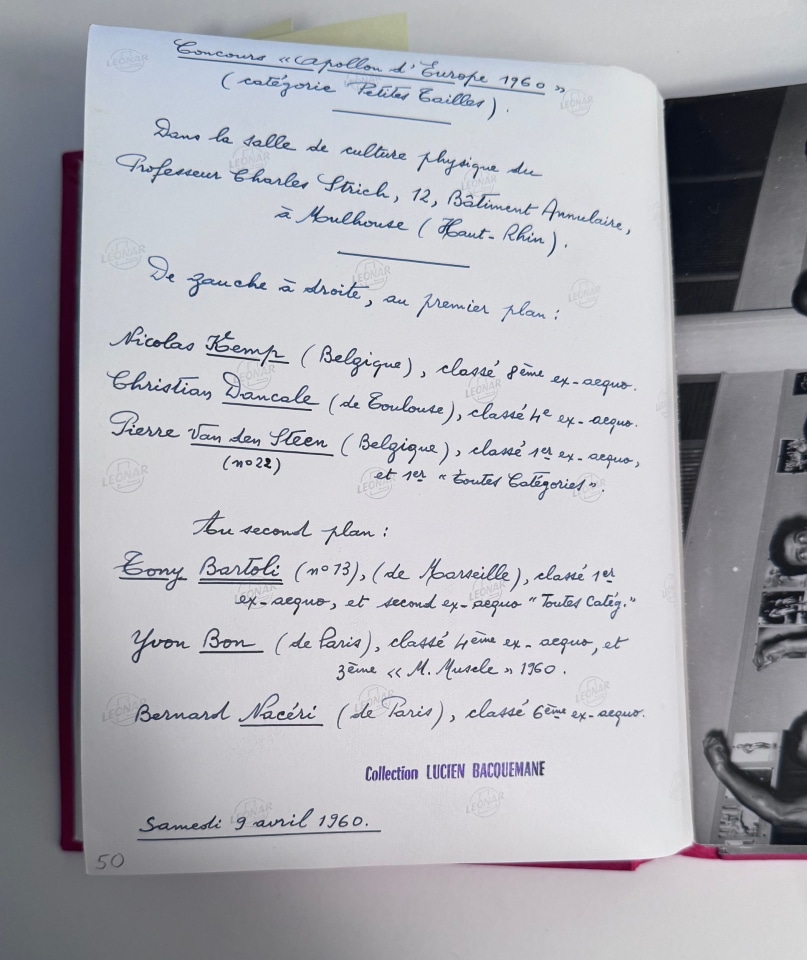 Concours « Apollon d'Europe 1960 »
(catégorie Petites Tailles).
Dans la salle de culture physique du
Professeur Charles Strich, 12, Bâtiment Annulaire,
à Mulhouse (Haut-Rhin).
De gauche à droite, au premier plan :
Nicolas Kemp (Belgique), classé 8ème ex-aequo.
Christian Dancale (de Toulouse), classé 4e ex-aequo.
Pierre Van den Steen (Belgique), classé 1er ex-aequo,
(n° 22) et 1er "Toutes Catégories".
Au second plan :
Tony Bartoli (n° 13), (de Marseille), classé 1er
ex-aequo, et second ex-aequo "Toutes Catég."
Yvon Bon (de Paris), classé 4ème ex-aequo, et
3ème « M. Muscle » 1960.
Bernard Nacéri (de Paris), classé 6ème ex-aequo.
Collection LUCIEN BACQUEMANE
Samedi 9 avril 1960.
50
LEONAR